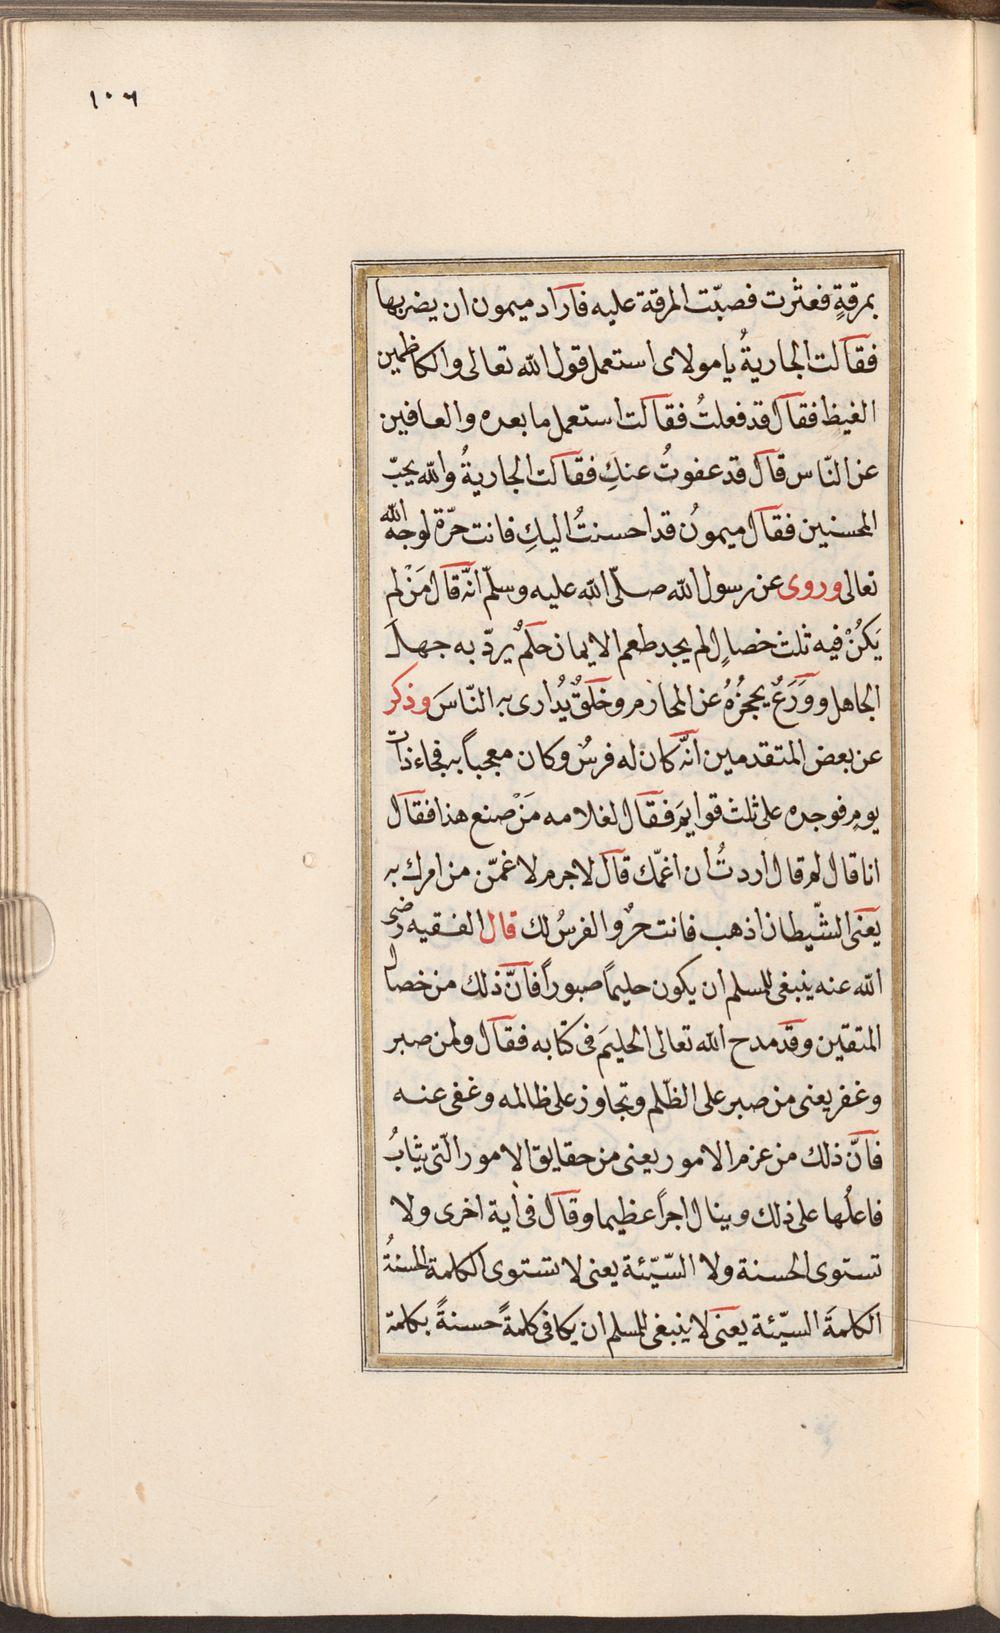 ١٠٦
بمرقةٍ فعثرت فصبّت المرقة عليه فاراد ميمون ان يضربها
فقالت الجاريةُ يا مولاى استعمل قول الله تعالى والكاظمين
الغيظ فقال قد فعلتُ فقالت استعمل ما بعده والعافين
عن النّاس قال قد عفوتُ عنكِ فقالت الجاريةُ والله يحبّ
المحسنين فقال ميمونُ قد احسنتُ اليكِ فانت حرّة لوجه الله
تعالى وروى عن رسول الله صلّى الله عليه وسلّم انّه قال مَنْ لم
يَكُنْ فيه ثلث خصالٍ لم يجد طعم الايمان حلمٌ يردّ به جهل
الجاهل وورَعٌ يحجزُهُ عن المحارم وخلقٌ يُدارى به النّاسَ وذكر
عن بعض المتقدمين انّه كان له فرسٌ وكان معجباً به فجاء ذات
يومٍ فوجده على ثلث قوايمَ فقال لغلامه مَنْ صنع هذا فقال
انا قال لم قال اردتُ ان اغمّك قال لا جرم لاغمّن من امرك به
يعنى الشّيطان اذهب فانت حرٌ والفرسُ لك قال الفقيه رضى
الله عنه ينبغى للمسلم ان يكون حليمًا صبوراً فانّ ذلك من خصال
المتقين وقد مدح الله تعالى الحليمَ فى كتابه فقال ولمن صبر
وغفر يعنى من صبر على الظّلم وتجاوز على ظالمه وغفى عنه
فانّ ذلك من عزم الامور يعنى من حقايق الامور الّتى يثابُ
فاعلُها على ذلك وينال اجراً عظيما وقال فى أية اخرى ولا
تستوى الحسنة ولا السّيّئة يعنى لا تستوى الكلمة الحسنةُ
الكلمةَ السيّئة يعنى لا ينبغى للمسلم ان يكافى كلمةً حسنةً بكلمة